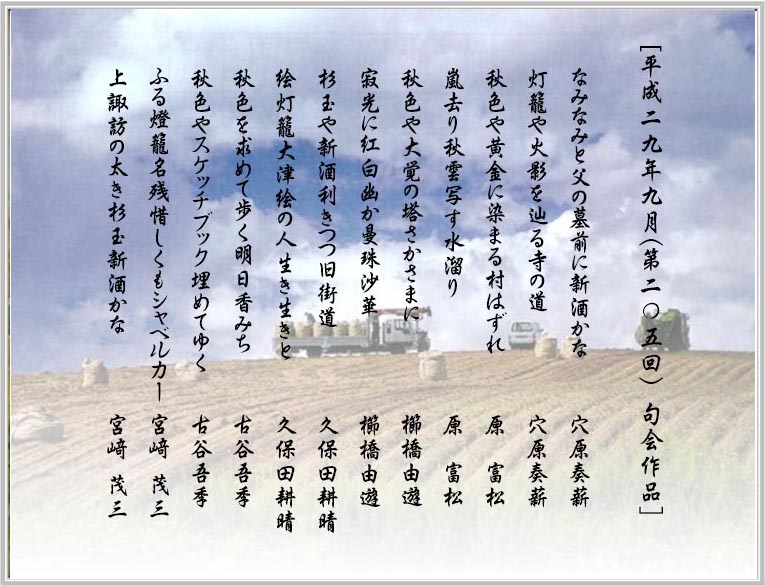 ［平成二九年九月（第二〇五回） 句会作品］
なみなみと父の墓前に新酒かな 穴原奏薪
灯籠や火影を辿る寺の道 穴原奏薪
秋色や黄金に染まる村はずれ 原 富松
嵐去り秋雲写す水溜り 原 富松
秋色や大覚の塔さかさまに 櫛橋由遊
寂光に紅白幽か曼珠沙華 櫛橋由遊
杉玉や新酒利きつつ旧街道 久保田耕晴
絵灯籠大津絵の人生き生きと 久保田耕晴
秋色を求めて歩く明日香みち 古谷吾季
秋色やスケッチブック埋めてゆく 古谷吾季
ふる燈籠名残惜しくもシャベルカー 宮﨑 茂三
上諏訪の太き杉玉新酒かな 宮﨑 茂三